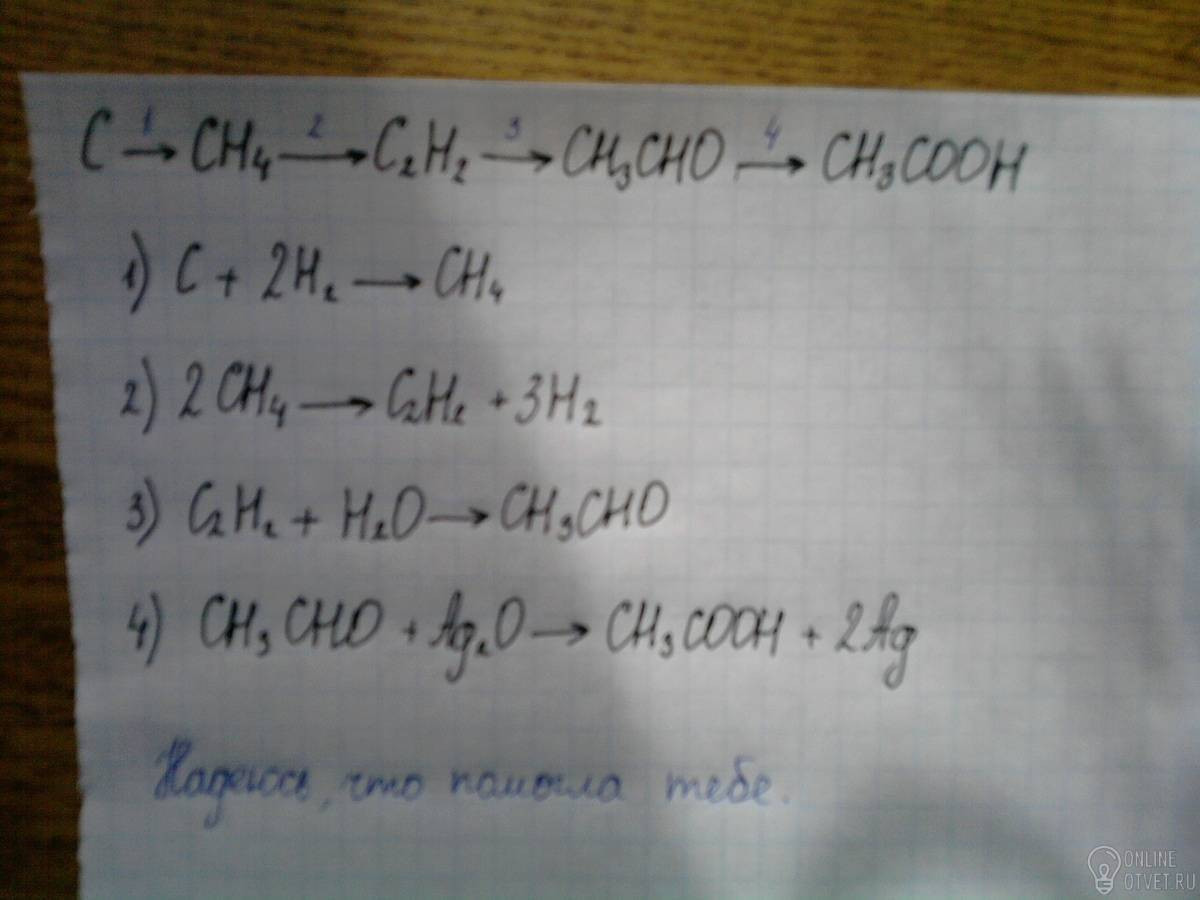 C 1→ CH₄ 2→ C₂H₂ 3→ CH₃CHO 4→ CH₃COOH
1) C + 2H₂ → CH₄
2) 2CH₄ → C₂H₂ + 3H₂
3) C₂H₂ + H₂O → CH₃CHO
4) CH₃CHO + Ag₂O → CH₃COOH + 2Ag
Надеюсь, что помогла тебе.
ONLINE
OTVET.RU